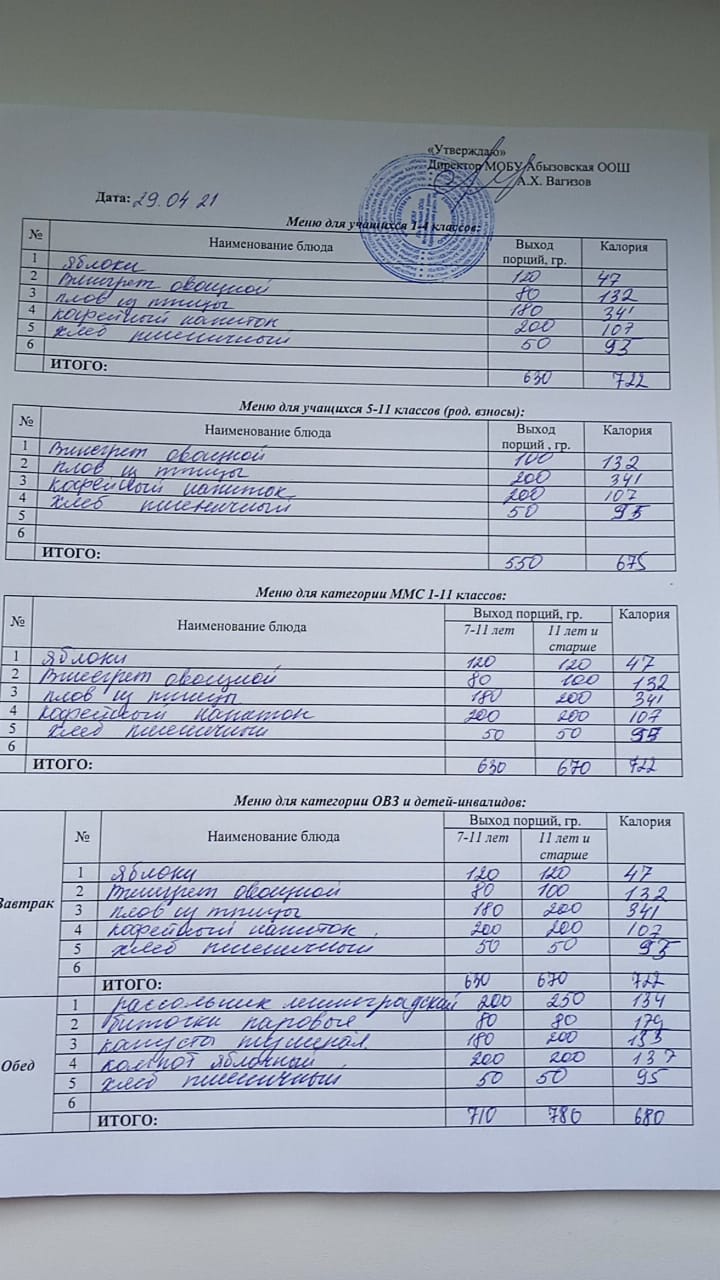 «Утверждаю»
Директор МОБУ Абызовская ООШ
А.Х. Вагизов
Дата: 29.04 21
Меню для учащихся 1-4 классов:
№ Наименование блюда Выход порций, гр. Калория
1 яблоки 120 47
2 Винегрет овощной 80 132
3 плов из птицы 180 341
4 кофейный напиток 200 107
5 хлеб пшеничный 50 95
6
ИТОГО: 630 722
Меню для учащихся 5-11 классов (род. взносы):
№ Наименование блюда Выход порций , гр. Калория
1 Винегрет овощной 100 132
2 плов из птицы 200 341
3 кофейный напиток 200 107
4 хлеб пшеничный 50 95
5
6
ИТОГО: 550 675
Меню для категории ММС 1-11 классов:
№ Наименование блюда Выход порций, гр. Калория
7-11 лет 11 лет и старше
1 яблоки 120 120 47
2 Винегрет овощной 80 100 132
3 плов из птицы 180 200 341
4 кофейный напиток 200 200 107
5 хлеб пшеничный 50 50 95
6
ИТОГО: 630 670 722
Меню для категории ОВЗ и детей-инвалидов:
№ Наименование блюда Выход порций, гр. Калория
7-11 лет 11 лет и старше
Завтрак
1 яблоки 120 120 47
2 Винегрет овощной 80 100 132
3 плов из птицы 180 200 341
4 кофейный напиток 200 200 107
5 хлеб пшеничный 50 50 95
6
ИТОГО: 630 670 722
Обед
1 рассольник ленинградский 200 250 134
2 биточки паровые 80 80 179
3 капуста тушеная 180 200 135
4 компот яблочный 200 200 137
5 хлеб пшеничный 50 50 95
6
ИТОГО: 710 780 680